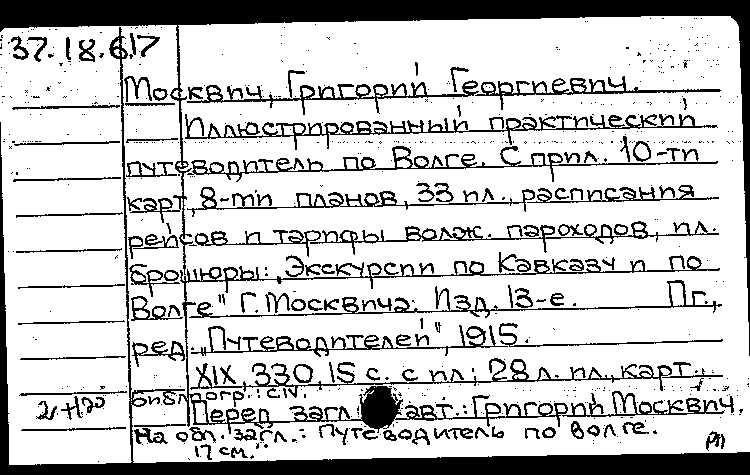 37.18.617
Москвич, Григорий Георгиевич.
Иллюстрированный практический
путеводитель по Волге. С прил. 10-ти
карт, 8-ми планов, 33 ил., расписания
рейсов и тарифы волж. пароходов, ил.
брошюры: „Экскурсии по Кавказу и по
Волге" Г. Москвича. Изд. 13-е. Пг.,
ред. „Путеводителей", 1915.
XIX, 330, 15 с. с ил; 28 л. ил., карт.;
Библиогр.: с. IV.
Перед загл. авт.: Григорий Москвич.
На обл. загл.: Путеводитель по Волге.
17 см.